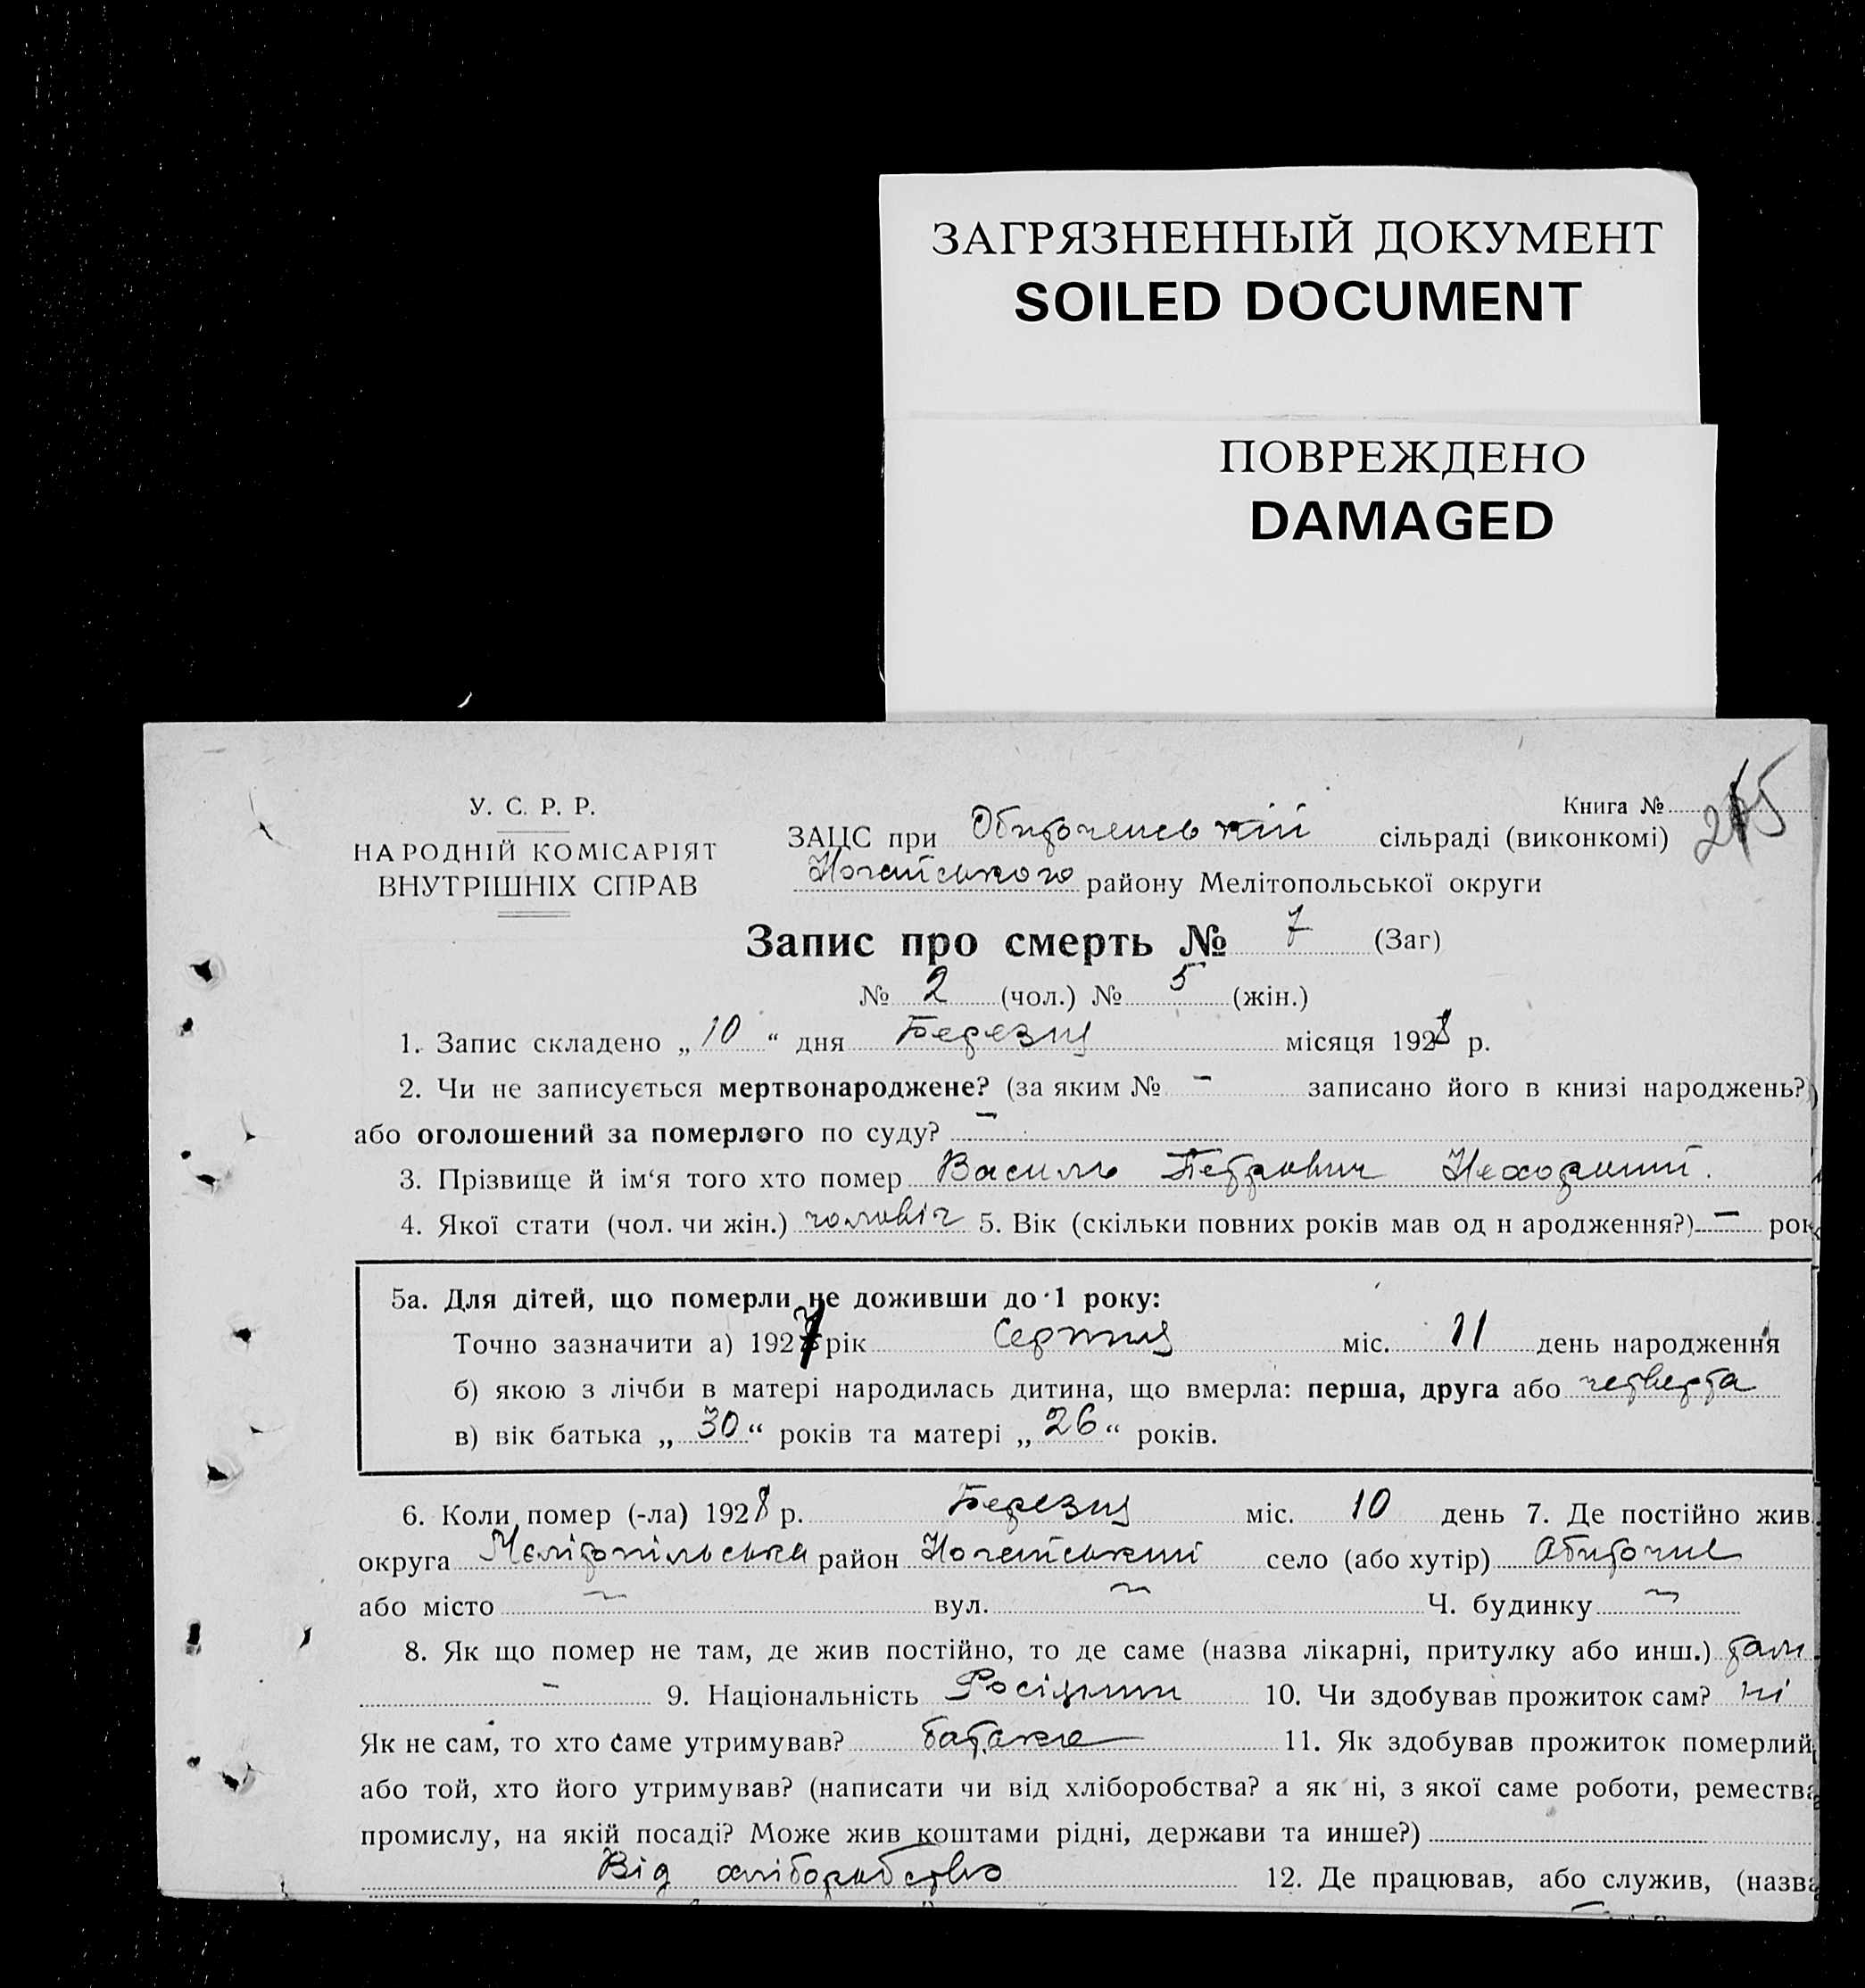 ЗАГРЯЗНЕННЫЙ ДОКУМЕНТ
SOILED DOCUMENT
ПОВРЕЖДЕНО
DAMAGED
У. С. Р. Р.
НАРОДНІЙ КОМІСАРІЯТ
ВНУТРІШНІХ СПРАВ
Книга №
ЗАЦС при Обиточенській сільраді (виконкомі)
Ногайського району Мелітопольської округи
Запис про смерть № 7 (Заг)
№ 2 (чол.) № 5 (жін.)
1. Запис складено „ 10 “ дня Березня місяця 1928 р.
2. Чи не записується мертвонароджене? (за яким № – записано його в книзі народжень?)
або оголошений за померлого по суду? –
3. Прізвище й ім‘я того хто помер Василь Петрович
4. Якої стати (чол. чи жін.) чоловіч 5. Вік (скільки повних років мав од н ародження?) – рок
5а. Для дітей, що померли не доживши до 1 року:
Точно зазначити а) 1927 рік Серпня міс. 11 день народження
б) якою з лічби в матері народилась дитина, що вмерла: перша, друга або четверта
в) вік батька „ 30 “ років та матері „ 26 “ років.
6. Коли помер (-ла) 1928 р. Березня міс. 10 день 7. Де постійно жив
округа Мелітопільська район Ногайський село (або хутір) Обиточне
або місто ~ вул. ~ Ч. будинку ~
8. Як що помер не там, де жив постійно, то де саме (назва лікарні, притулку або инш.) там
– 9. Національність Росіянин 10. Чи здобував прожиток сам? ні
Як не сам, то хто саме утримував? батько 11. Як здобував прожиток померлий
або той, хто його утримував? (написати чи від хліборобства? а як ні, з якої саме роботи, ремества
промислу, на якій посаді? Може жив коштами рідні, держави та инше?)
Від хліборобство 12. Де працював, або служив, (назва